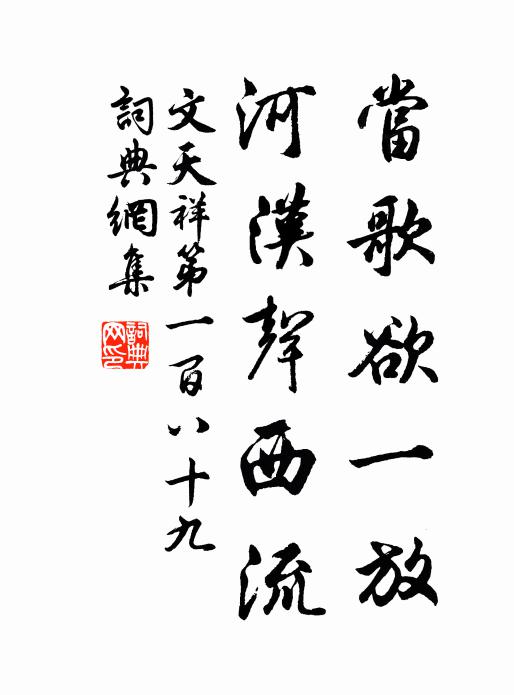 當歌欲一放
河漢聲西流
文天祥第一百八十九
詞典網集
詞典
网印